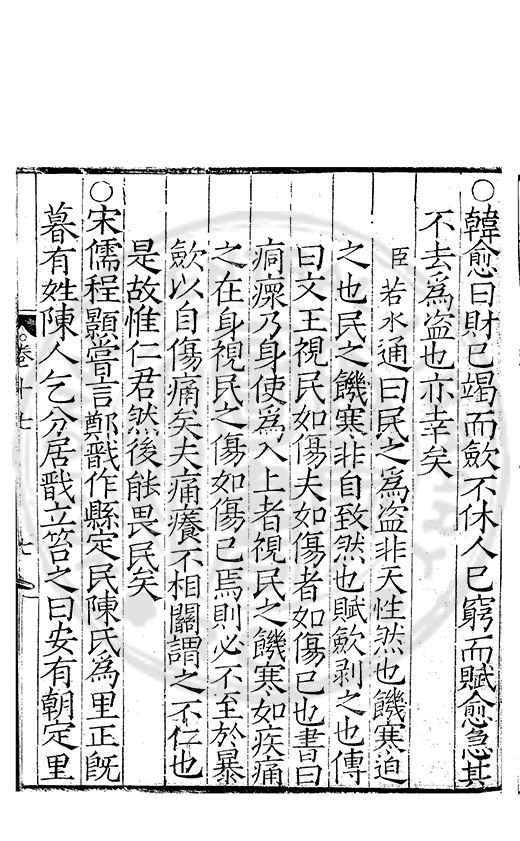 ○韓愈曰財已竭而歛不休人已窮而賦愈急其
不去為盜也亦幸矣
臣若水通曰民之為盜非天性然也饑寒迫
之也民之饑寒非自致然也賦歛剥之也傳
曰文王視民如傷夫如傷者如傷已也書曰
痌瘝乃身使為人上者視民之饑寒如疾痛
之在身視民之傷如傷已焉則必不至於暴
歛以自傷痛矣夫痛癢不相關謂之不仁也
是故惟仁君然後能畏民矣
○宋儒程顥嘗言鄭戩作縣定民陳氏為里正既
暮有姓陳人乞分居戩立笞之曰安有朝定里
卷十七
七